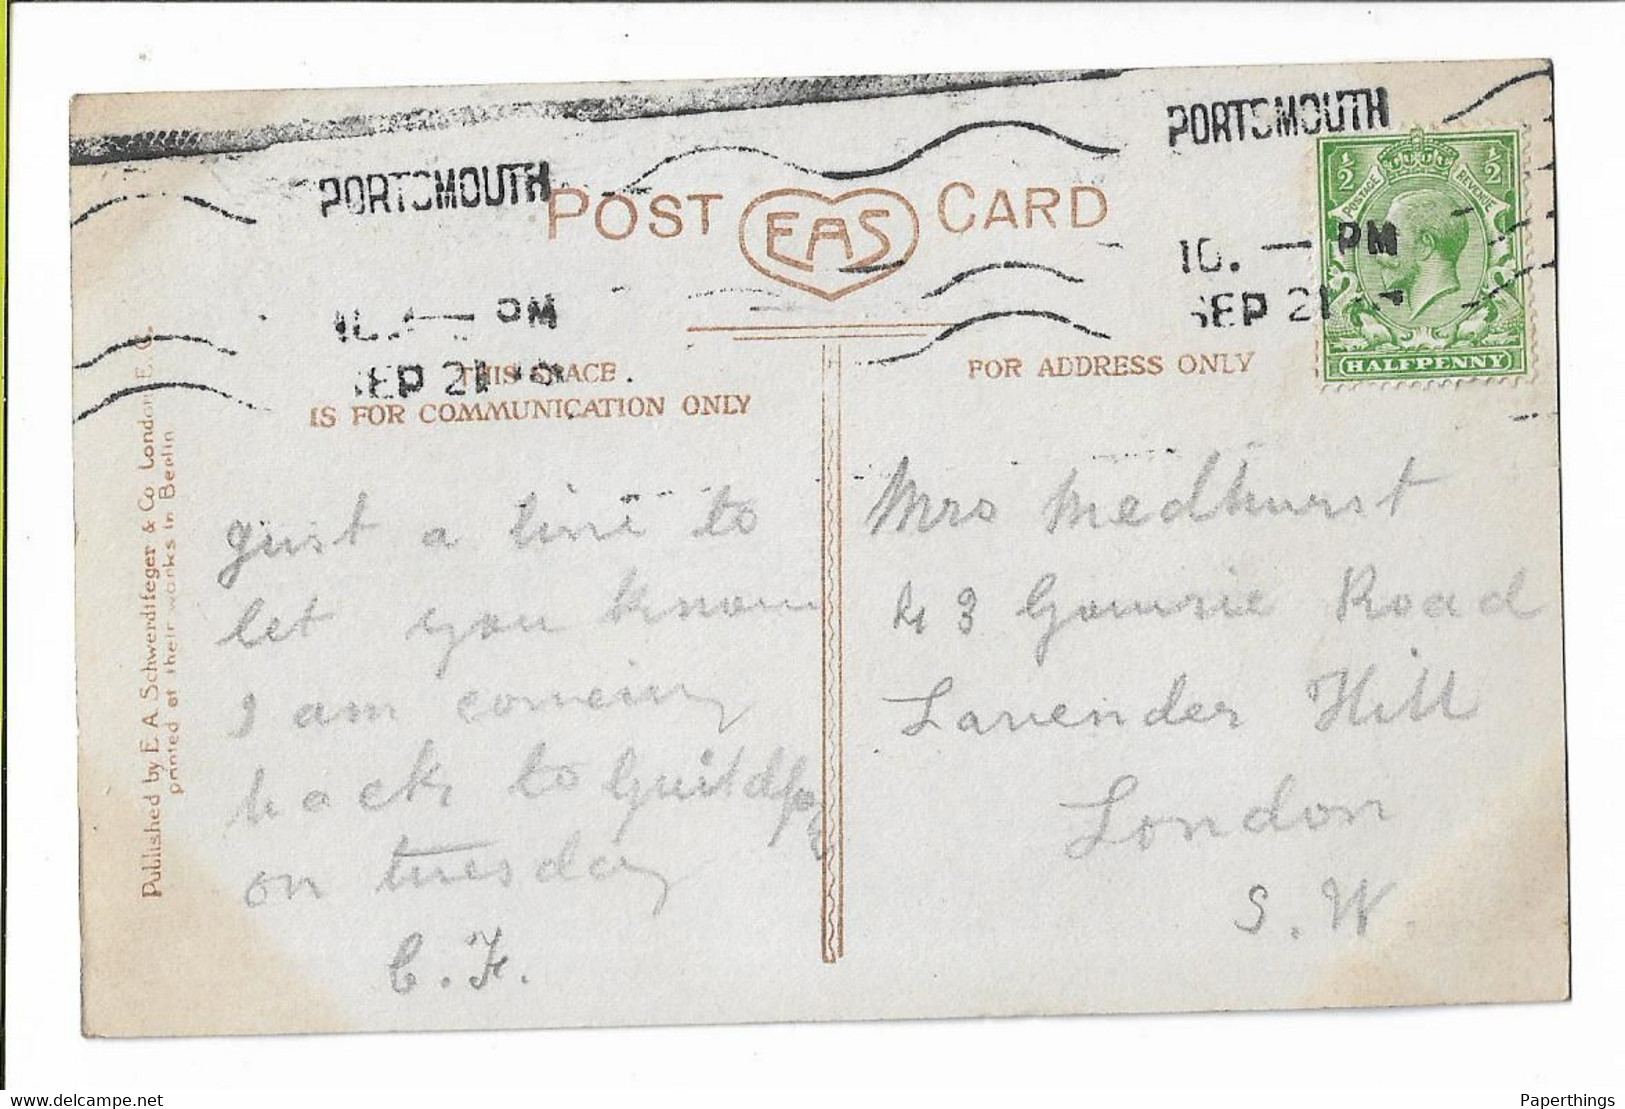 PORTSMOUTH
PORTSMOUTH
POST EAS CARD
POSTAGE REVENUE
½ ½
10. — PM
SEP 21
HALFPENNY
PM
SEP 21
THIS SPACE
IS FOR COMMUNICATION ONLY
FOR ADDRESS ONLY
Published by E.A. Schwerdtfeger & Co London E.C.
printed at their works in Berlin
Just a line to
let you know
I am comeing
back to Guildford
on tuesday
C. F.
Mrs Medhurst
43 Gowrie Road
Lavender Hill
London
S. W.
Paperthings
www.delcampe.net